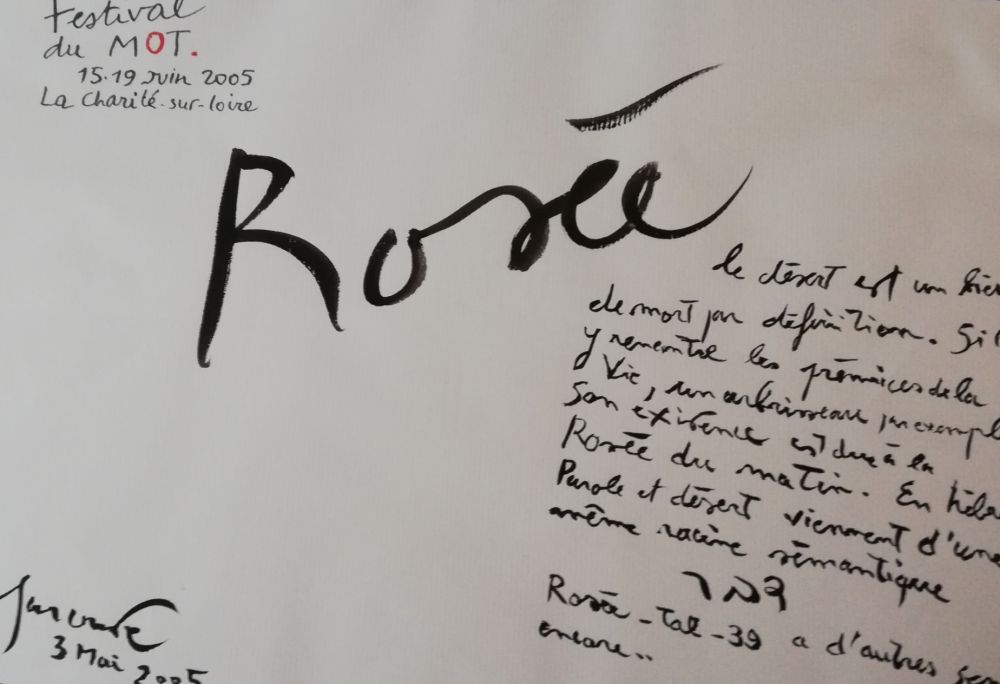 Festival
du MOT.
15.19 Juin 2005
La Charité-sur-loire
Rosée
le désert est un lieu
de mort par définition. Si
y rencontre les prémices de la
Vie, un arbrisseau par exempl
son existence est due à la
Rosée du matin. En hébr
Parole et désert viennent d'une
même racine sémantique
דבר
Rosée - Tal - 39 a d'autres sen
encore..
3 Mai 2005